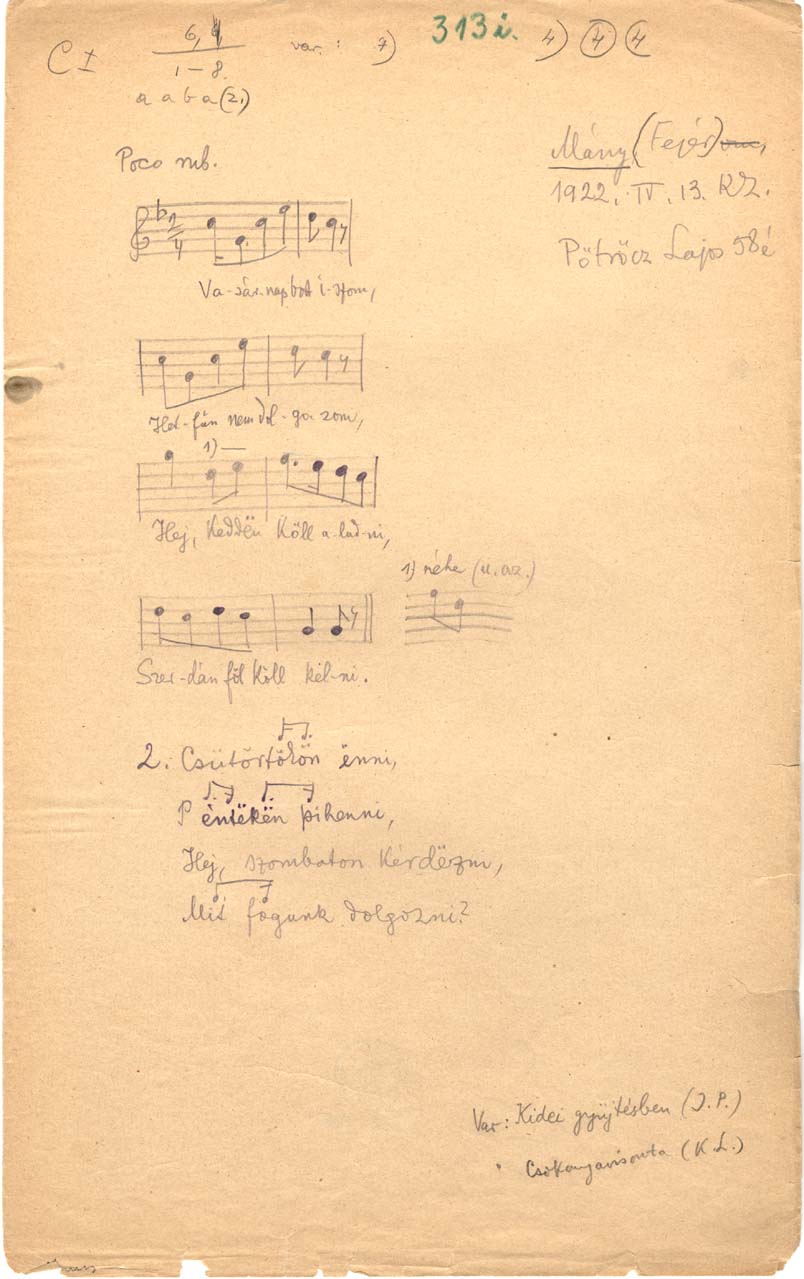 C I 6, 4 var: 7) 313i. 4) 4 4
1–8.
a a b a (2.)
Mány (Fejér)
1922. IV. 13. KZ.
Pötröcz Lajos 58é
Poco rub.
2/4
Va-sár-nap bort i-szom,
Het-fűn nem dol-go-zom,
1)
Hej, Keddën Köll a-lud-ni,
1) néha (u.az.)
Szer-dán föl Köll kel-ni.
2. Csütörtökön ënni,
Péntëkën pihenni,
Hej, szombaton Kérdëzni,
Mit fogunk dolgozni?
Var: Kidei gyüjtésben (J.P.)
" Csokonyavisonta (K.L.)